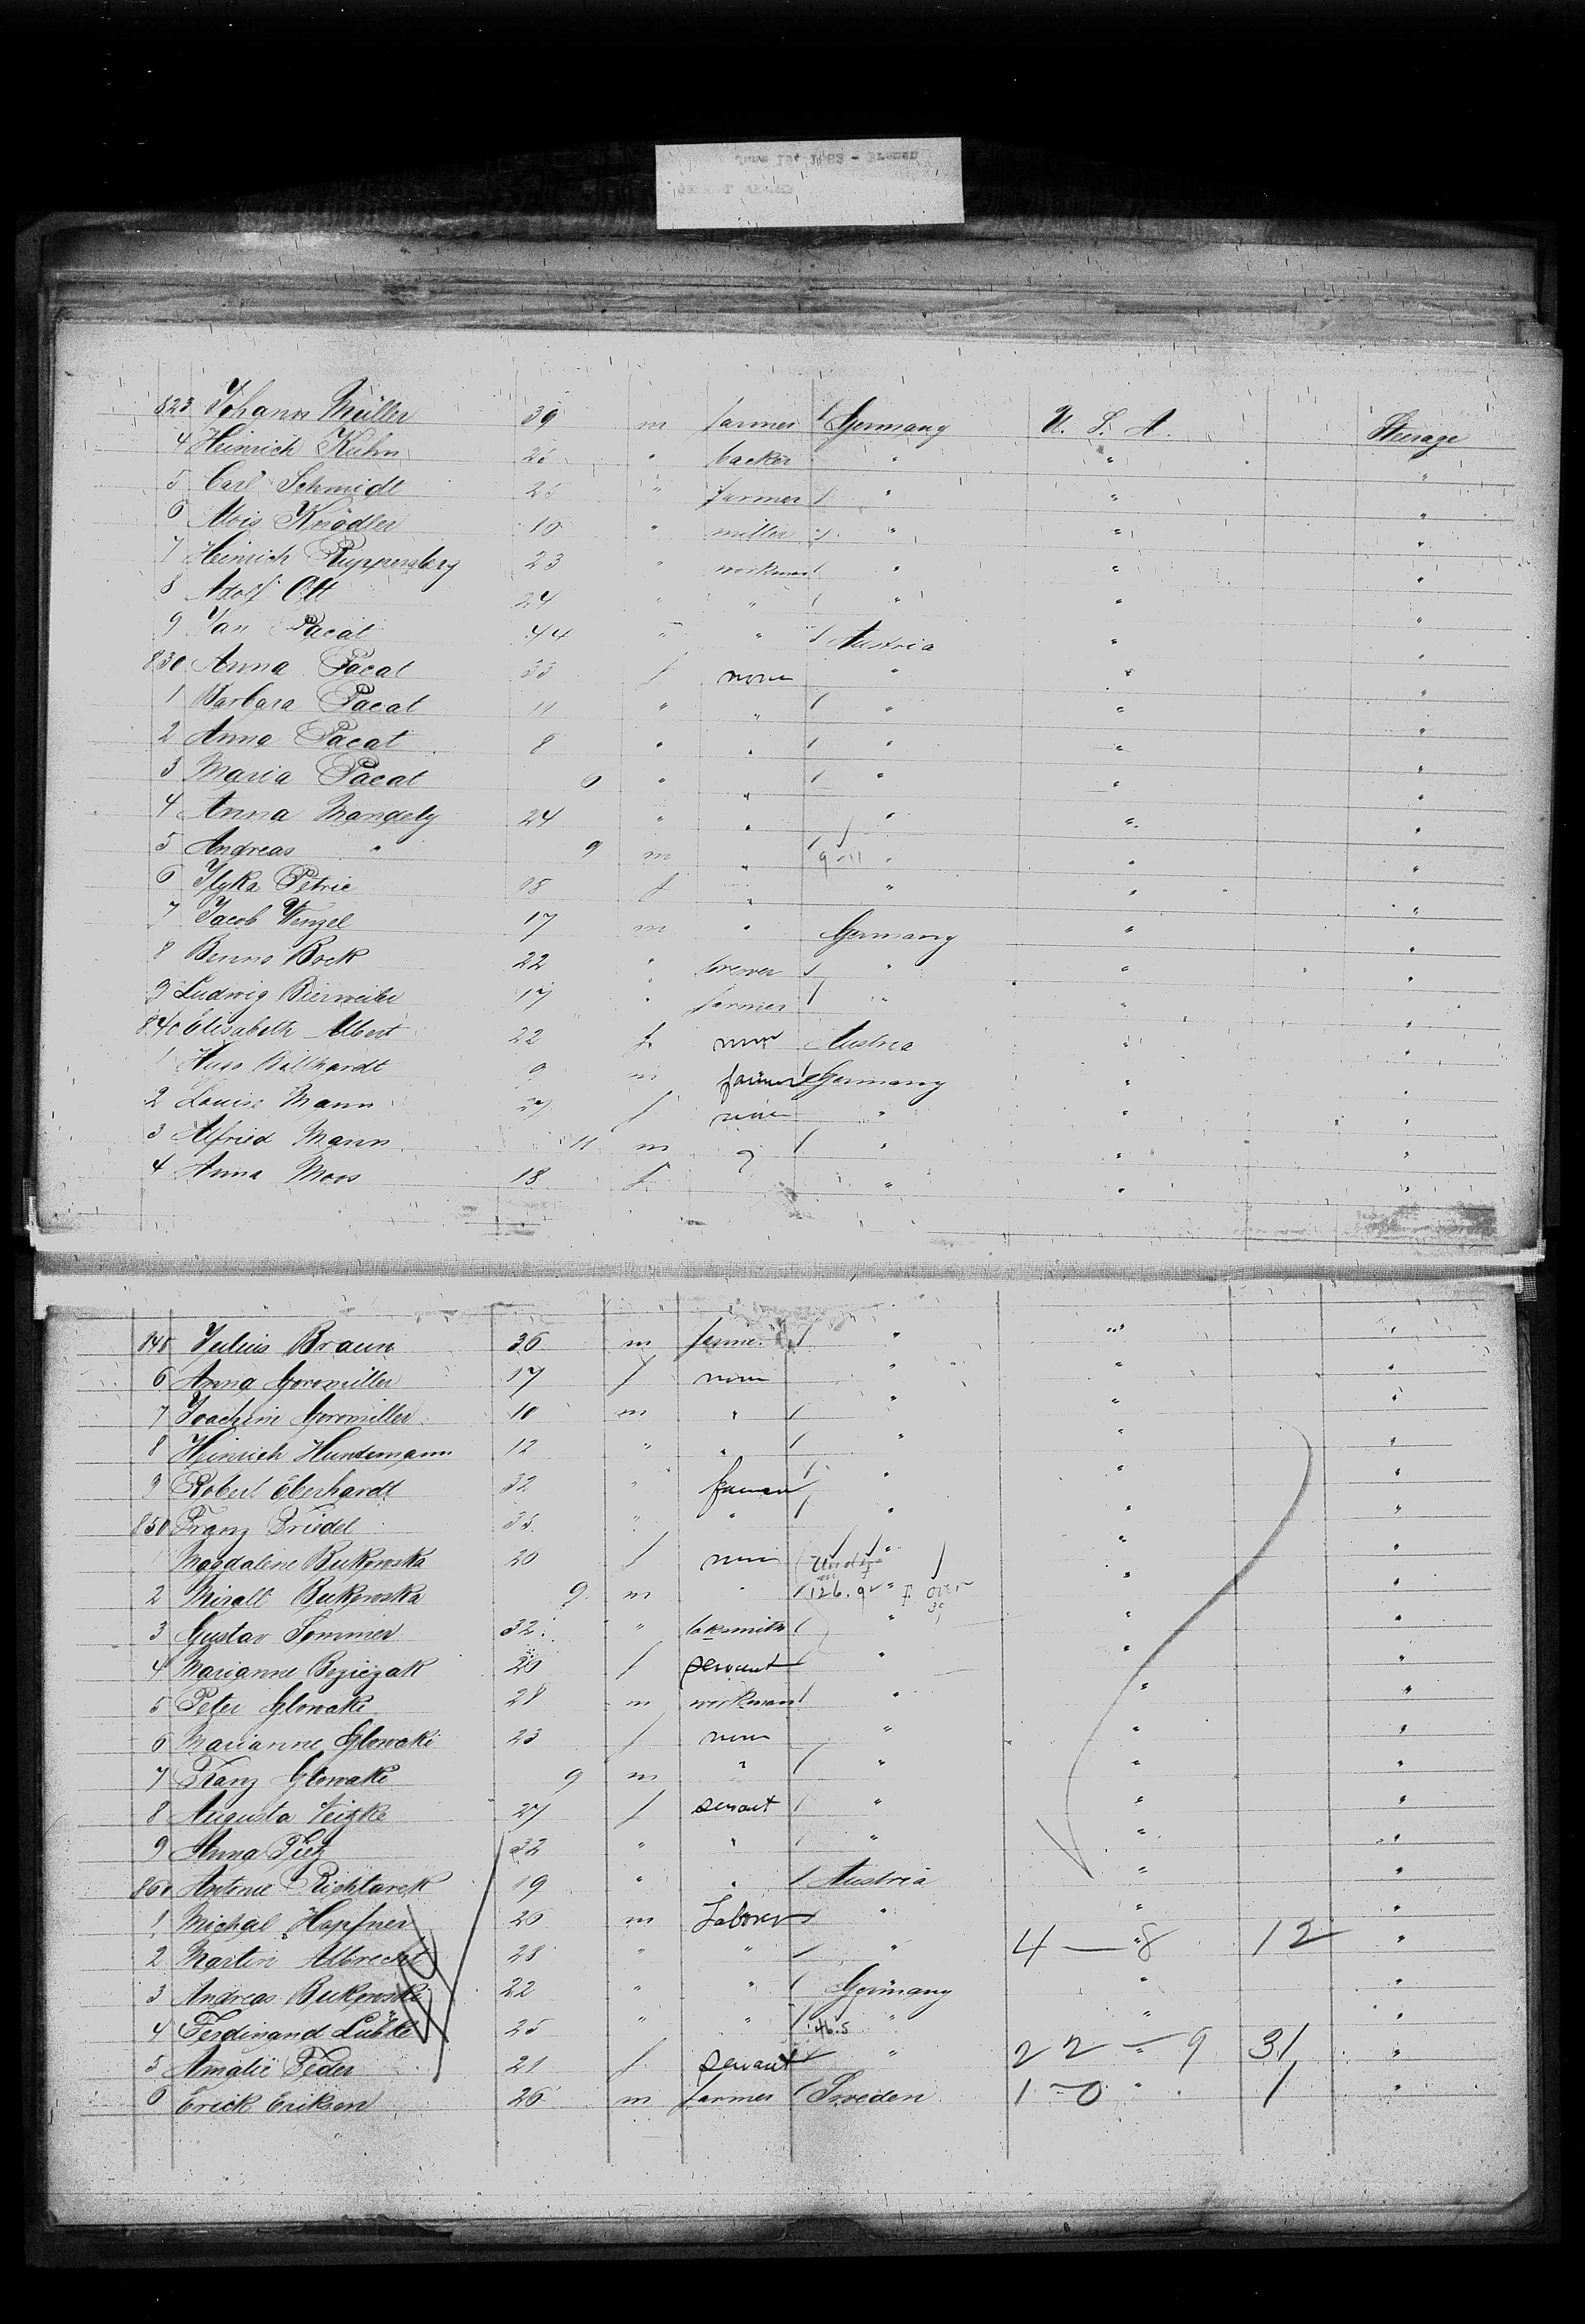 June 1st 1883 - Bremen
823 Johann Müller 39 m farmer / Germany U. S. A. Steerage
4 Heinrich Kuhn " backer " " "
5 Carl Schmidt 25 " farmer / " " "
6 Alois Knödler 10 " miller / " " "
7 Heinrich Ruppersberg 23 " workman / " " "
8 Adolf Ott 24 " " / " " "
9 Jan Pacat 44 " " / Austria " "
830 Anna Pacat 33 f none " " "
1 Barbara Pacat 11 " " / " " "
2 Anna Pacat 8 " " / " " "
3 Maria Pacat 6 " " / " " "
4 Anna Mangely 24 " " " " "
5 Andreas " 9 m " / 9-11 " " "
6 Petric 18 f " " " "
7 Jacob Wenzel 17 m " Germany " "
8 Benno Bock 22 " brewer / " " "
9 Ludwig Bierweiler 17 " farmer / " " "
840 Elisabeth Albert 22 f none Austria " "
1 Billhardt 9 m farmer / Germany " "
2 Louise Mann 27 f none " " "
3 Alfried Mann 11 m " / " " "
4 Anna Moos 18 f " " "
845 Julius Braun 36 m farmer / " " "
6 Anna Goromiller 17 f none " " "
7 Joachim Goromiller 10 m " / " " "
8 Heinrich Hundemann 12 " " / " " "
9 Robert Eberhardt 32 " farmer / " " "
850 Franz Friedel 35 " " / " " "
1 Magdalene Bukowska 20 f none " " "
2 Bukowska 9 m " / 126.9 " F over " "
3 Gustav Sommer 32 " / " " "
4 Marianne Beziczak 20 f servant / " " "
5 Peter Glowaki 28 m workman / " " "
6 Marianne Glowaki 23 f none " " "
7 Franz Glowaki 9 m " / " " "
8 Augusta Veitzke 27 f servant / " " "
9 Anna Tietz 32 " " / " " "
860 Antonie Richtarek 19 " " / Austria " "
1 Michal Hopfner 26 m Laborer / " " "
2 Martin Albrecht 28 " " / " 4 — 8 12 "
3 Andreas Bukowski 22 " " / Germany " "
4 Ferdinand Lübke 25 " " / 46.5 " " "
5 Amalie Feder 21 f servant / " 22 — 9 31 "
6 Erick Eriksen 26 m farmer / Sweden 1 - 0 " 1 "